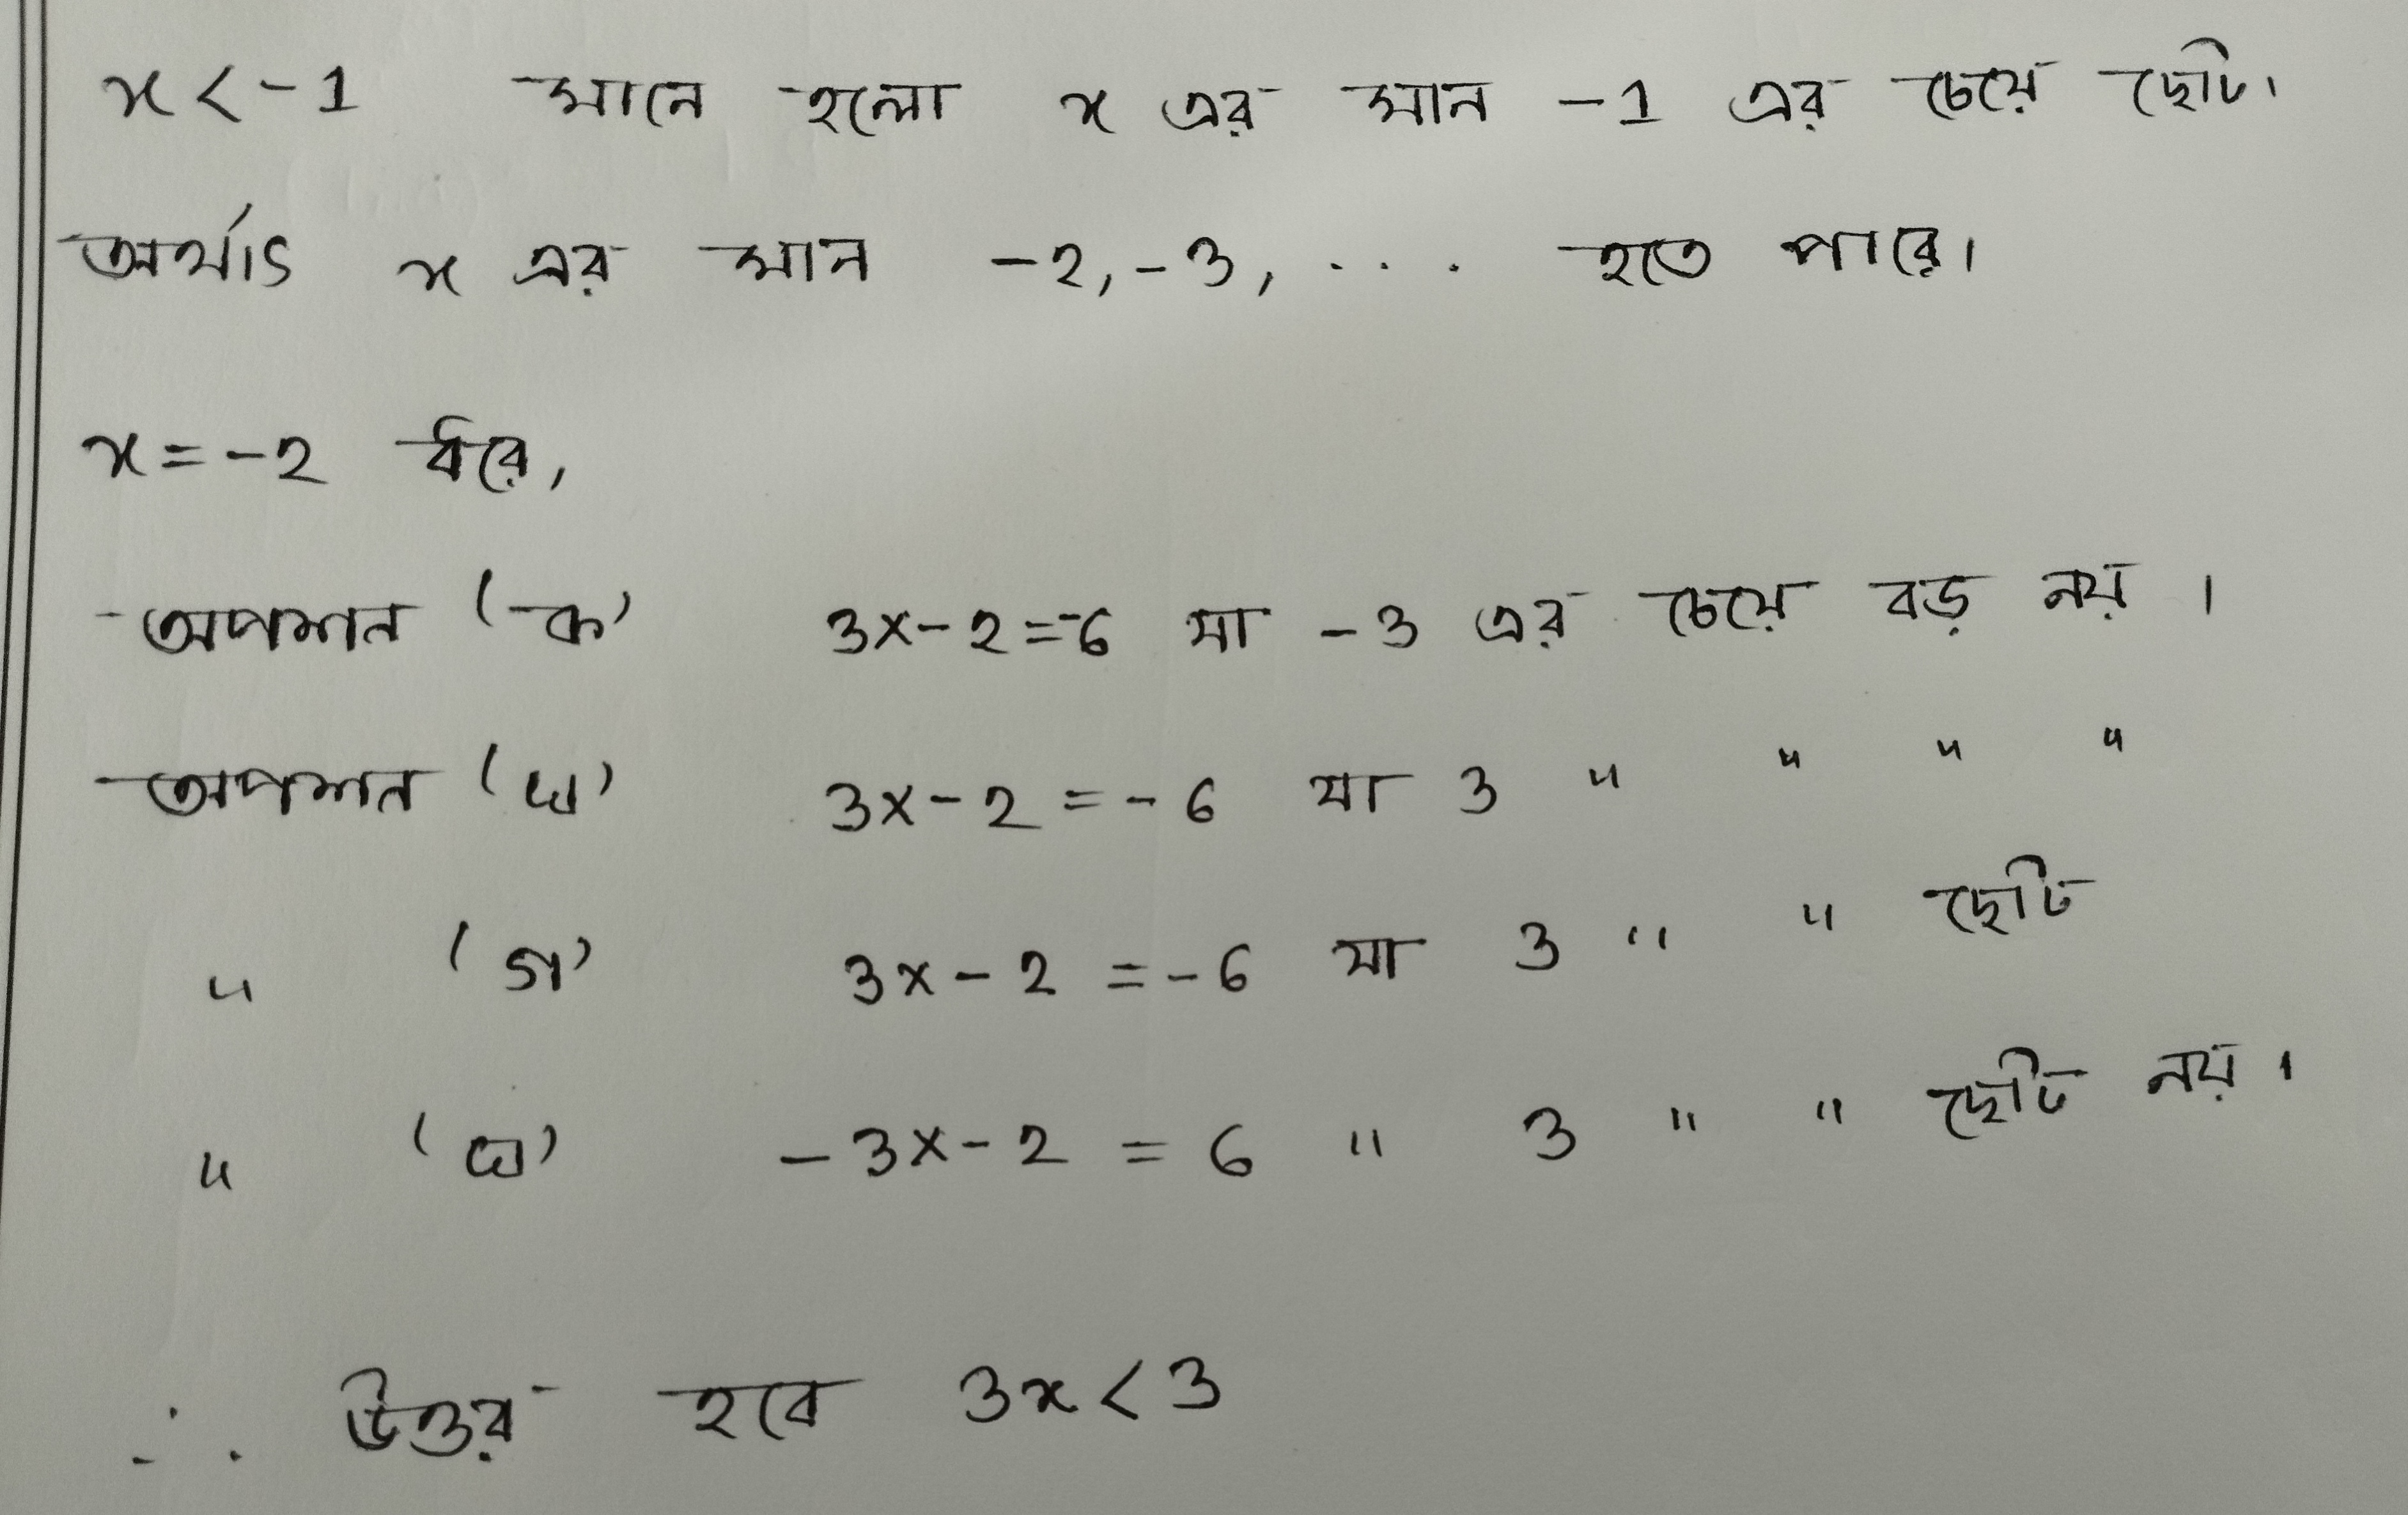 x < -1 মানে হলো x এর মান -1 এর চেয়ে ছোট।
অর্থাৎ x এর মান -2, -3, .... হতে পারে।
x = -2 ধরে,
অপশন (ক) 3×-2 = -6 যা -3 এর চেয়ে বড় নয় ।
অপশন (খ) 3×-2 = -6 যা 3 " " " "
" (গ) 3×-2 = -6 যা 3 " " ছোট
" (ঘ) -3×-2 = 6 " 3 " " ছোট নয় ।
∴ উত্তর হবে 3x < 3